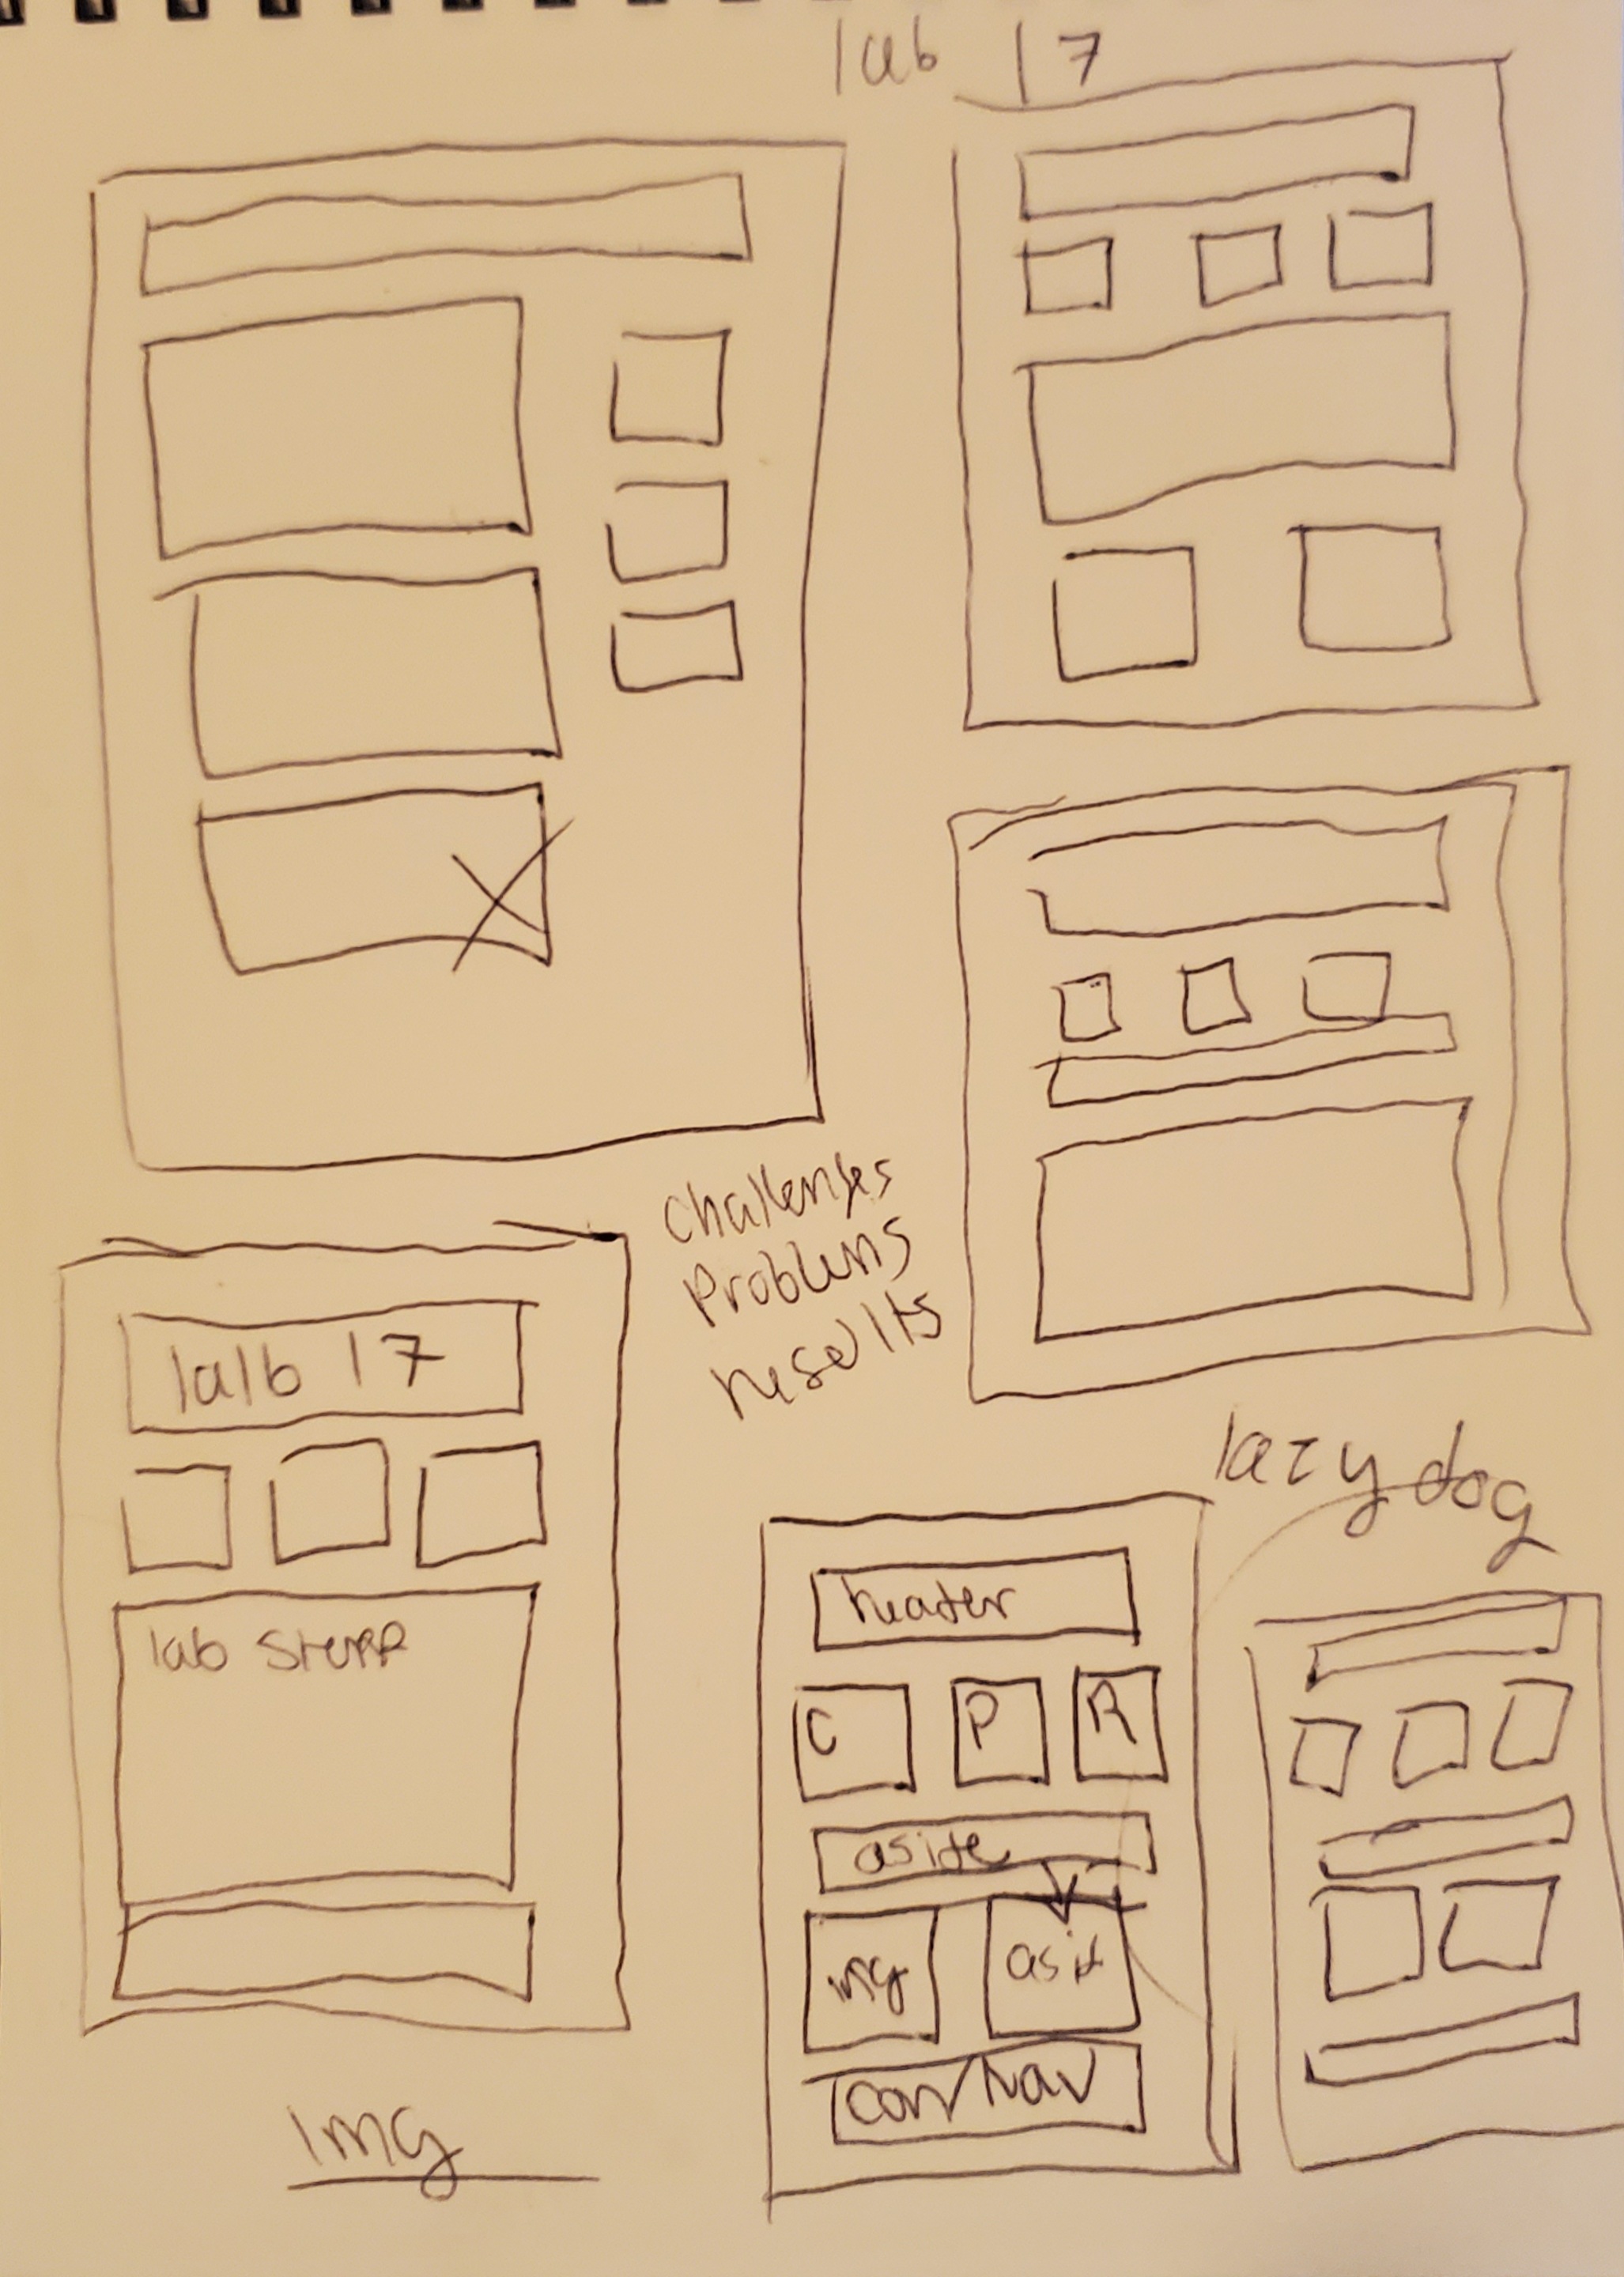 lab 17
challenges
Problems
results
lalb 17
lab Stuff
lazy dog
header
C P R
aside
img asid
con/Nav
Img